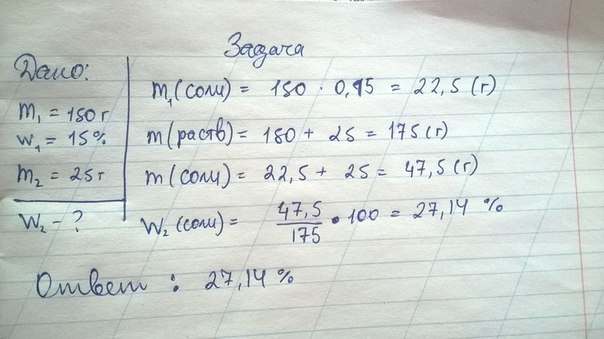 Задача
Дано:
m₁ = 150 г
w₁ = 15%
m₂ = 25 г
W₂ - ?
m₁(соли) = 150 · 0,15 = 22,5 (г)
m(раств) = 150 + 25 = 175 (г)
m(соли) = 22,5 + 25 = 47,5 (г)
W₂ (соли) = 47,5/175 · 100 = 27,14 %
Ответ : 27,14 %